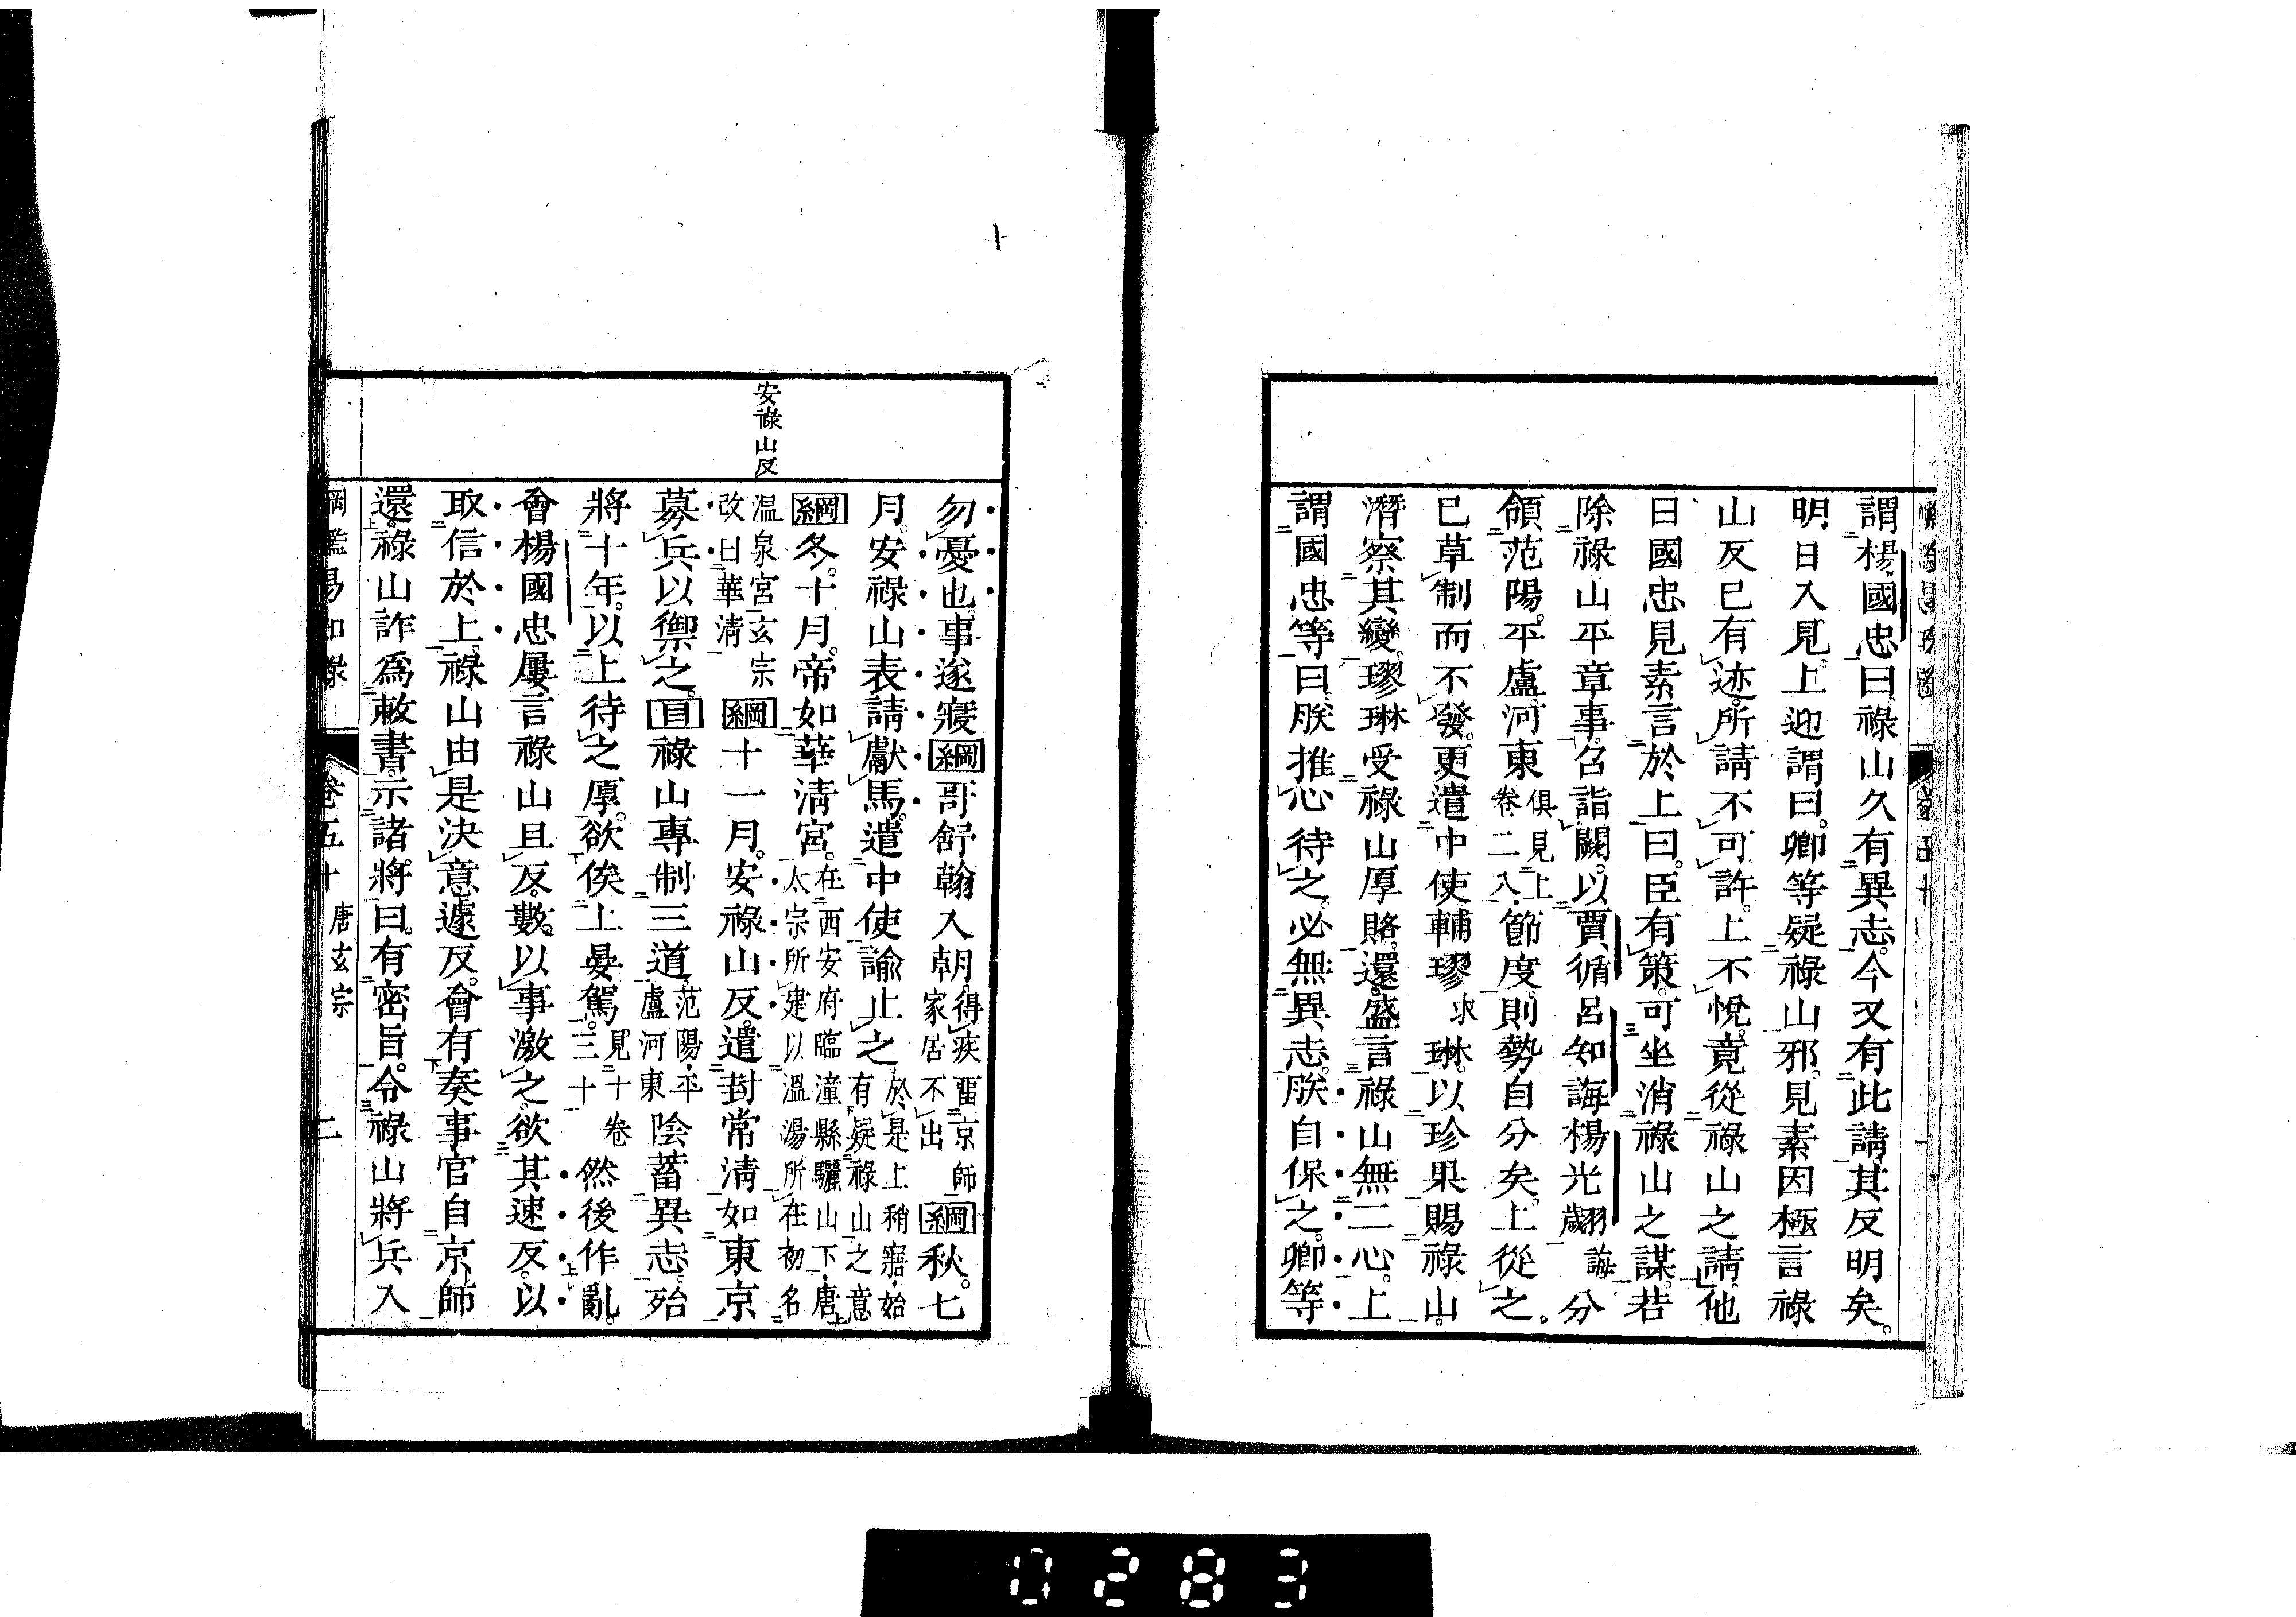 謂楊國忠曰祿山久有異志。今又有此請其反明矣。
明日入見。上迎謂曰。卿等疑祿山邪。見素因極言祿
山反已有迹。所請不可許。上不悅。竟從祿山之請。他
日國忠見素言於上曰。臣有策。可坐消祿山之謀。若
除祿山平章事。召詣闕。以賈循呂知誨楊光翽誨分
領范陽。平盧。河東俱見上卷二八節度。則勢自分矣。上從之。
已草制而不發。更遣中使輔璆求琳。以珍果賜祿山。
潛察其變。璆琳受祿山厚賂。還。盛言祿山無二心。上
謂國忠等曰。朕推心待之。必無異志。朕自保之。卿等
勿憂也。事遂寢綱哥舒翰入朝。得疾留京師家居不出綱秋。七
月。安祿山表請獻馬。遣中使諭止之。於是上稍寤始有疑祿山之意
綱冬。十月。帝如華清宮。在西安府臨潼縣驪山下唐太宗所建以溫湯所在初名
溫泉宮玄宗改曰華清綱十一月。安祿山反。遣封常清如東京
募兵以禦之。目祿山專制三道范陽平盧河東陰蓄異志。殆
將十年。以上待之厚。欲俟上晏駕。見十卷三十然後作亂。
會楊國忠屢言祿山且反。數以事激之。欲其速反。以
取信於上。祿山由是決意遽反。會有奏事官自京師
還。祿山詐爲敕書。示諸將曰。有密旨。令祿山將兵入
安祿山反
綱鑑易知錄
卷五十
唐玄宗
二
0283